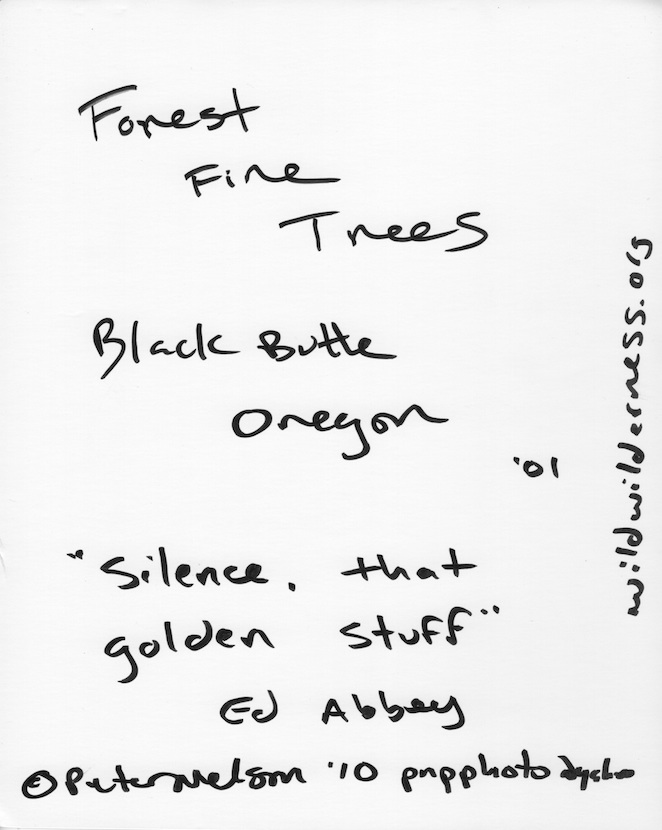 Forest
Fire
Trees
Black Butte
Oregon
'01
wildwilderness.org
"Silence, that
golden stuff"
Ed Abbey
© Peter Nelson '10 pnpphoto